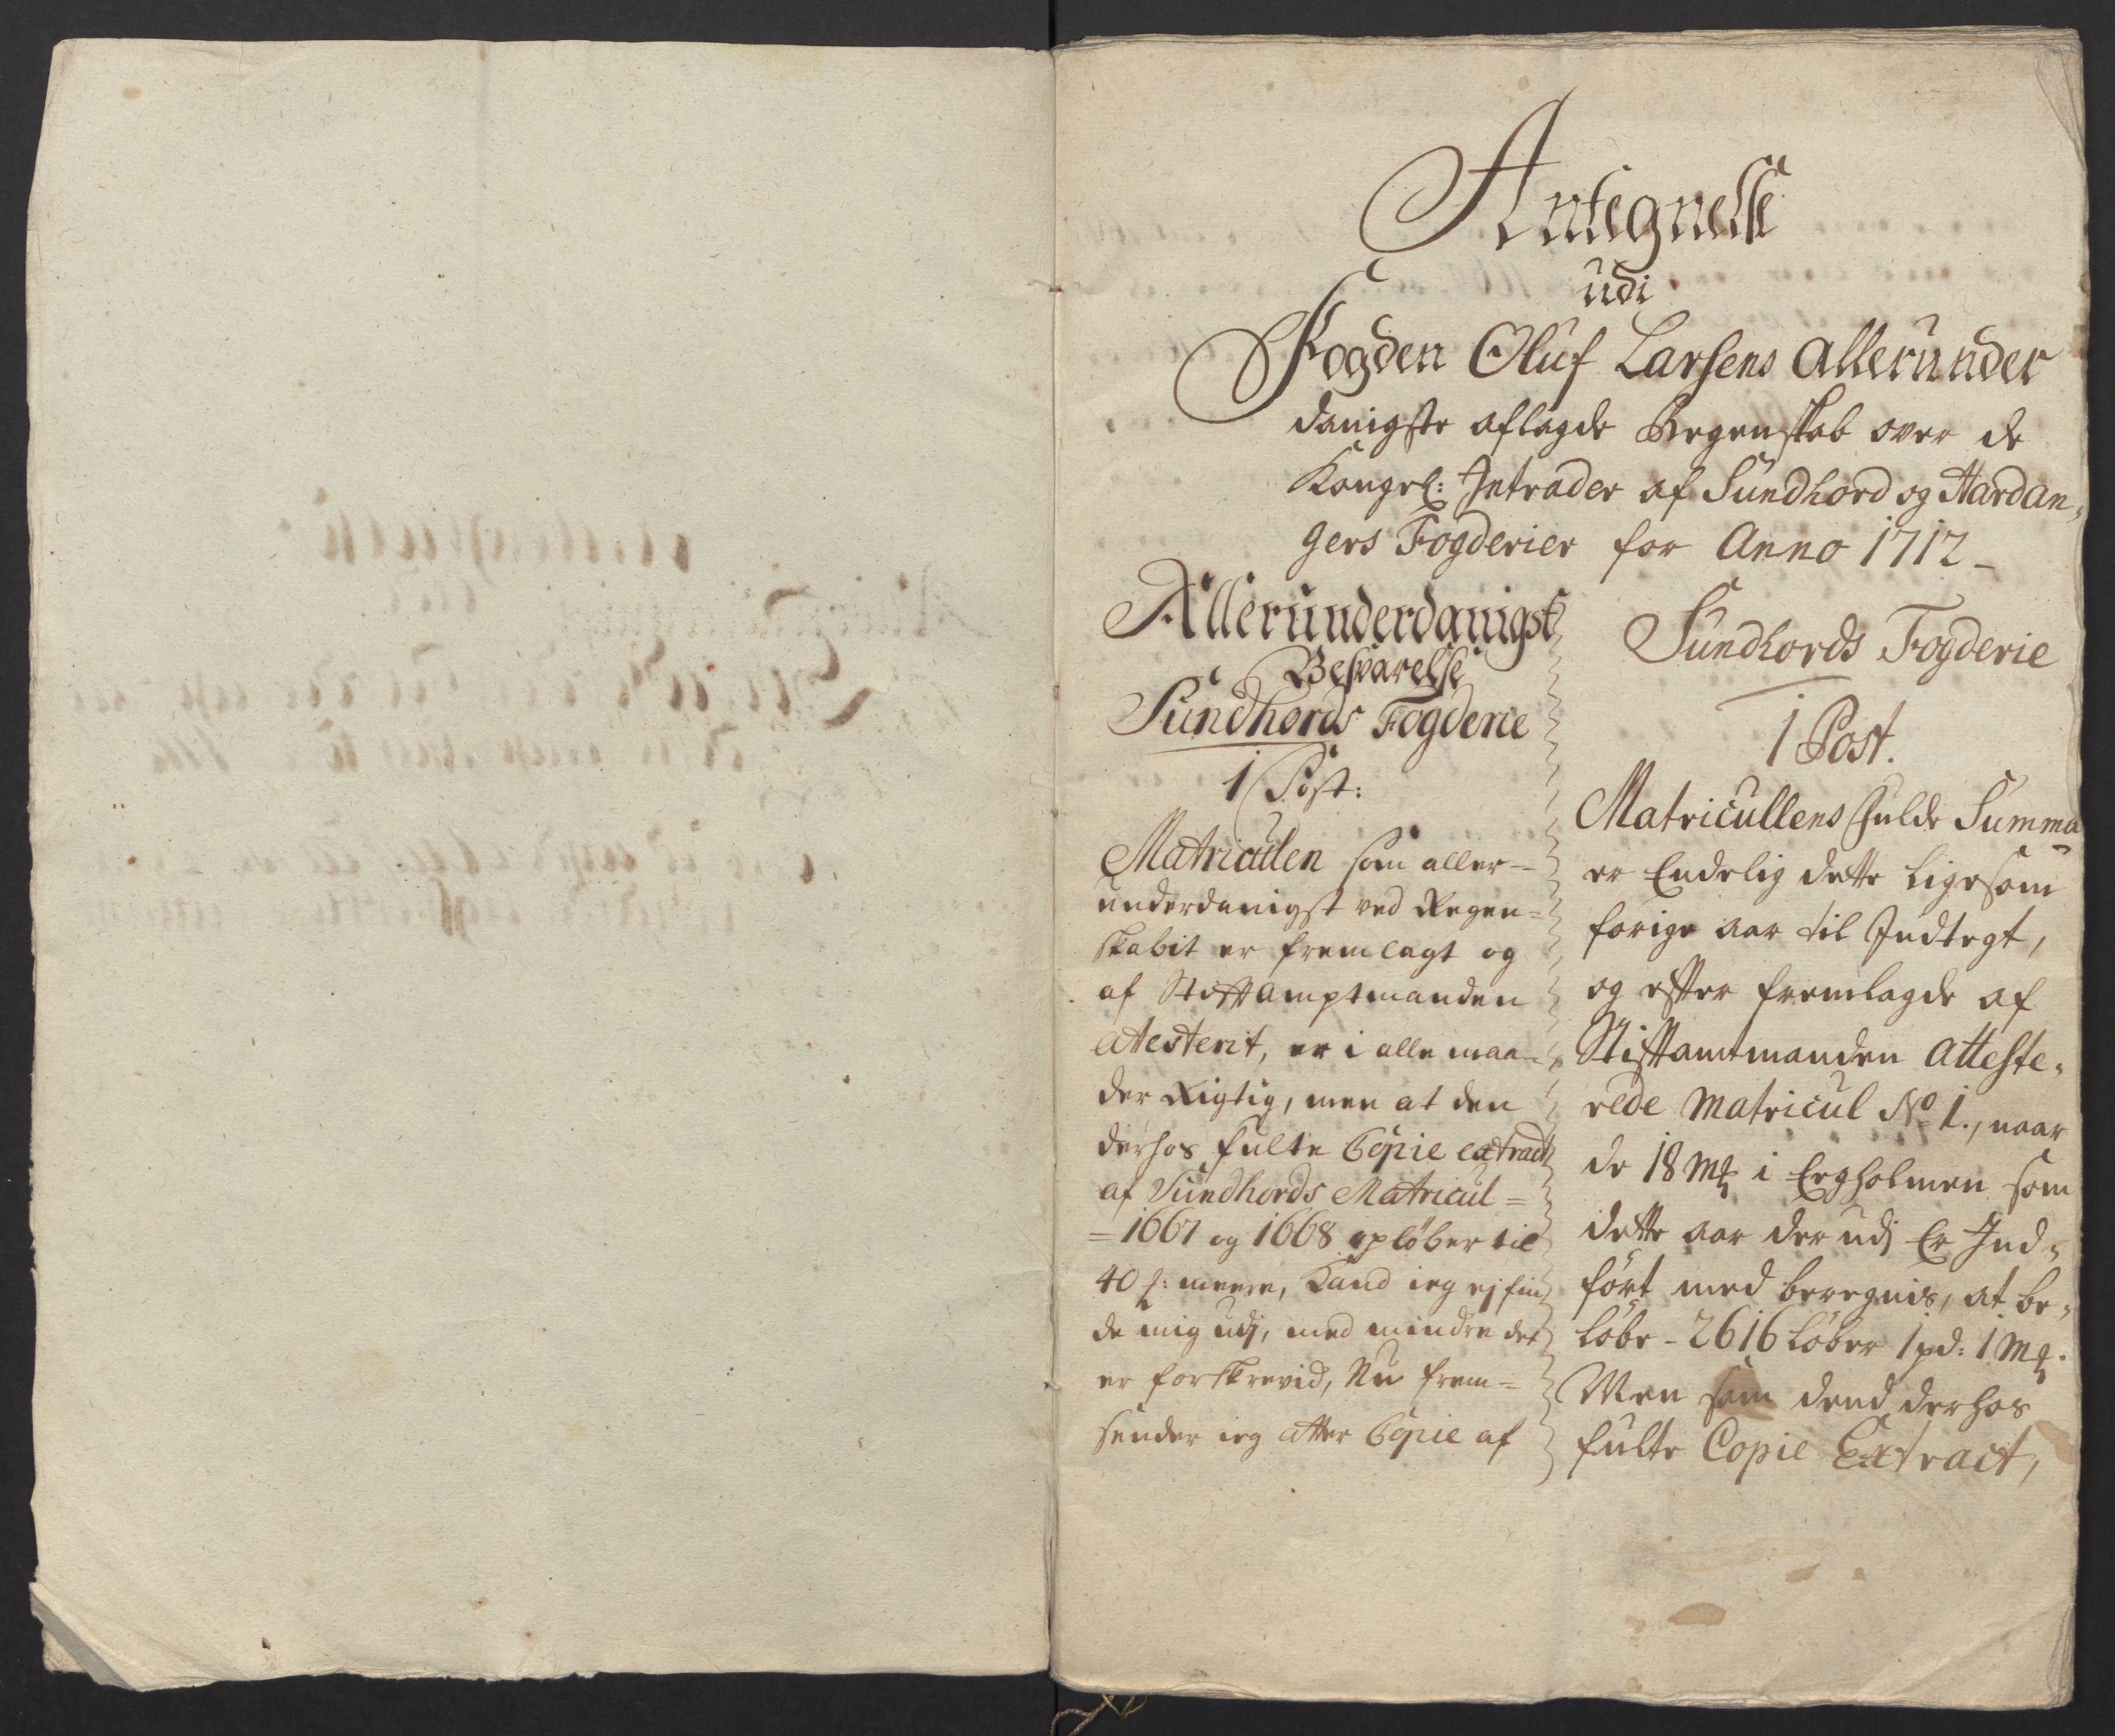 Antegnelse
udi
Fogden Oluf Larsens Allerunder
danigste aflagde Regenskab over de
Kongel: Intrader af Sundhord og Hardan,
gers Fogderier for Anno 1712 –
Allerunderdanigst
Besvarelse
Sundhords Fogderie
1 Post:
Matriculen som aller=
underdanigst ved Regen=
skabit er fremlagt og
af Stiftamptmanden
attesterit, er i alle maa=
der Rigtig, men at den
derhos fulte Copie extract
af Sundhords Matricul=
=1667 og 1668 opløber til
40 s: meere, Kand ieg ej fin,
de mig udj, med mindre det
er forskrevid, Nu frem=
sender ieg atter Copie af
Sundhords Fogderie
1 Post.
Matricullens fulde Summa
er Endelig dette ligesom
forige aar til Indtegt,
og efter fremlagde af
Stiftamtmanden atteste,
rede Matricul No 1., naar
de 18 mk i Ergholmen som
dette aar der udj Er Ind,
ført med beregnis, at be,
løbe – 2616 Løber 1 pd: 1 mk.
Men som dend derhos
fulte Copie Extract,